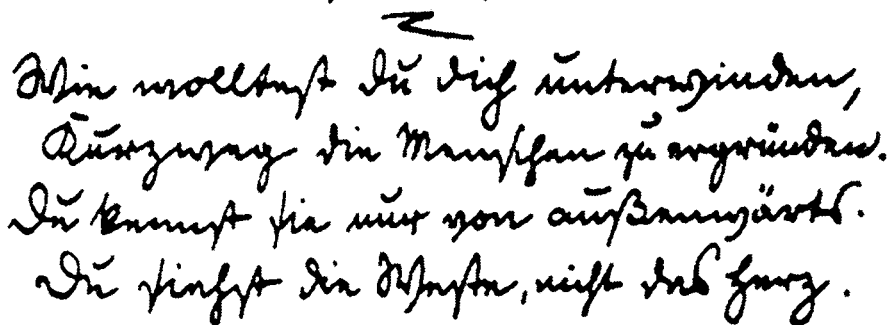 Wie wolltest du dich unterwinden,
Kurzweg die Menschen zu ergründen.
Du kennst sie nur von außenwärts.
Du siehst die Weste, nicht das Herz.